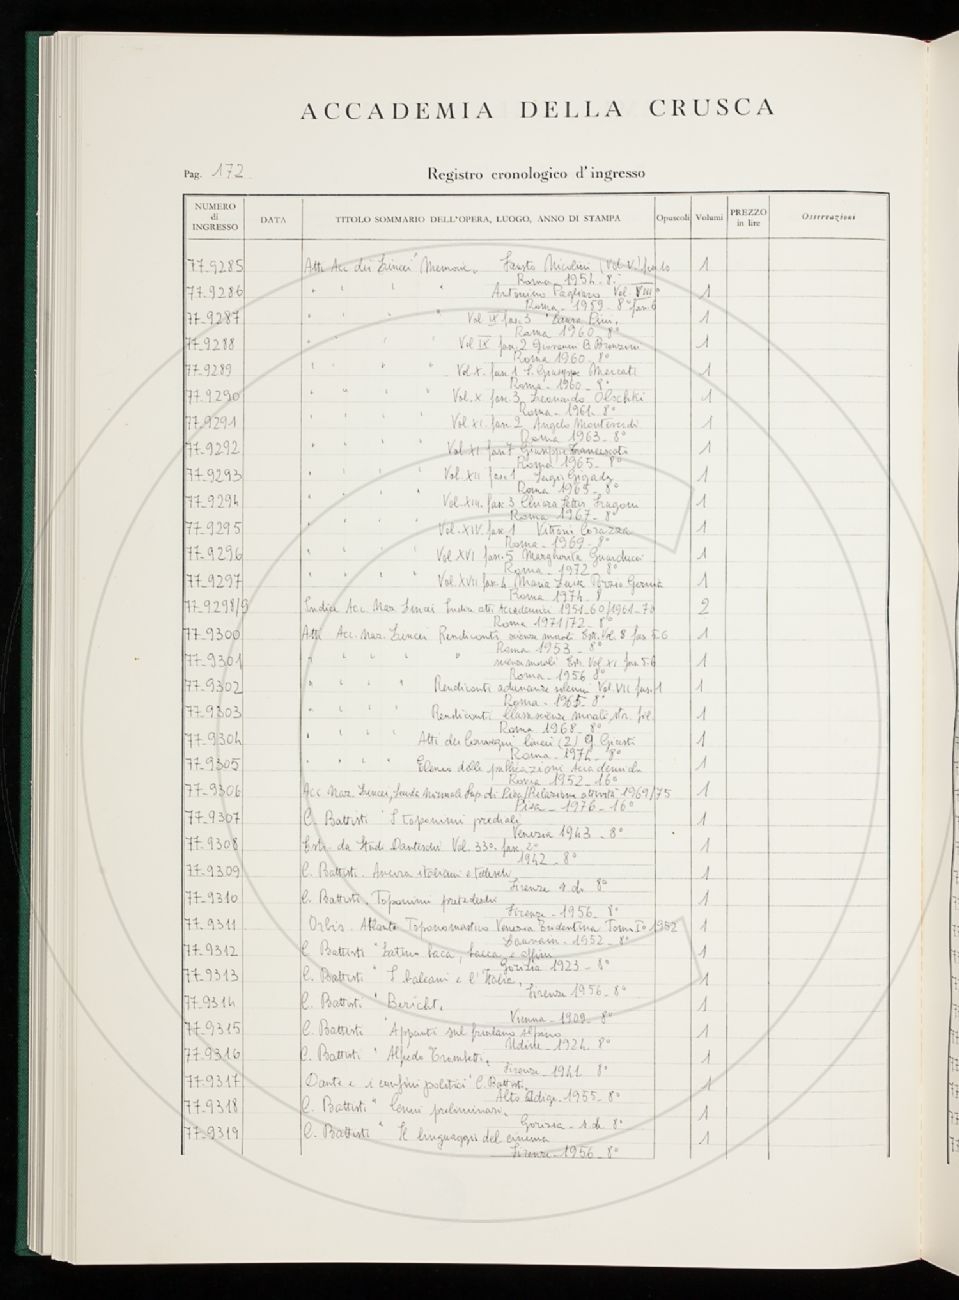 ACCADEMIA DELLA CRUSCA
Pag. 172
Registro cronologico d'ingresso
NUMERO di INGRESSO DATA TITOLO SOMMARIO DELL'OPERA, LUOGO, ANNO DI STAMPA Opuscoli Volumi PREZZO in lire Osservazioni
77-9285 Atti Acc. dei Lincei "Memorie. Fausto Nicolini (Vol. V.) 1
Roma 1954 - 8°
77-9286 " " " " Antonino Pagliaro Vol. VIII° 1
Roma - 1959 8° fas. 6
77-9287 " " " " Vol IX fas. 3 1
Roma 1960 - 8°
77-9288 " " " Vol IX. fas. 2 Giovanni B. 1
Roma 1960 - 8°
77-9289 " " " " Vol. X. fas. 1 S. Giuseppe Mercati 1
Roma - 1960 - 8°
77-9290 " " " " Vol. X fas. 3 Leonardo Olschki 1
Roma - 1964 - 8°
77-9291 " " " " Vol. XI. fas. 2 Angelo Monteverdi 1
Roma 1963 - 8°
77-9292 " " " " Vol XI fas. 7 Giuseppe 1
Roma 1965 - 8°
77-9293 " " " " Vol. XII fas. 1 1
Roma 1965 - 8°
77-9294 " " " " Vol. XIII. fas. 3 1
Roma - 1967 - 8°
77-9295 " " " " Vol. XIV. fas 1 Vittorio 1
Roma - 1969 - 8°
77-9296 " " " " Vol XVI fas. 5 Margherita Guarducci 1
Roma - 1972 - 8°
77-9297 " " " " Vol. XVII fas. 4 Maria Luisa 1
Roma 1974 - 8
77-9298/9 Indice Acc. Naz. Lincei Indice atti Accademici 1951-60/1961-70 2
Roma 1971/72 - 8°
77-9300 Atti Acc. Naz. Lincei Rendiconti scienze morali Estr. Vol. 8 fas 5-6 1
Roma 1953 - 8°
77-9301 " " " " scienze morali Estr. Vol. XI fas. 5-6 1
Roma - 1956 8°
77-9302 " " " " Rendiconti adunanze solenni Vol. VII fas. 1 1
Roma - 1965 - 8°
77-9303 " " " Rendiconti Classe scienze morali, stor. fil. 1
Roma 1968 - 8°
77-9304 " " " " Atti dei Convegni Lincei (2) G. Giusti 1
Roma - 1974 - 8°
77-9305 " " " " Elenco delle pubblicazioni Accademiche 1
Roma 1952 - 16°
77-9306 Acc. Naz. Lincei, Scuola Normale Sup. di Pisa/Relazione attività 1969/75 1
Pisa - 1976 - 16°
77-9307 C. Battisti "I toponimi prediali 1
Venezia 1943 - 8°
77-9308 Estr. da Studi Danteschi Vol. 33°. fas. 2° 1
1942 - 8°
77-9309 C. Battisti. Ancora italiani e tedeschi 1
Firenze s.d. 8°
77-9310 C. Battisti. Toponimi prelatini 1
Firenze - 1956 - 8°
77-9311 Orbis. Atlante Toponomastico Venezia Tridentina Tomo I° 1952 1
Louvain - 1952 - 8°
77-9312 C. Battisti "Latino baca, bacca, e affini 1
Gorizia 1923 - 8°
77-9313 C. Battisti " I balcani e l'Italia, 1
Firenze 1956 - 8°
77-9314 C. Battisti " Bericht, 1
Vienna - 1909 - 8°
77-9315 C. Battisti "Appunti sul friulano 1
Udine - 1924 - 8°
77-9316 C. Battisti " Alfredo Trombetti, 1
Firenze - 1941 8°
77-9317 Dante e i confini politici" C. Battisti, 1
Alto Adige - 1955 - 8°
77-9318 C. Battisti " Cenni preliminari, 1
Gorizia - s.d. 8°
77-9319 C. Battisti " Il linguaggio del cinema 1
Firenze - 1956 - 8°